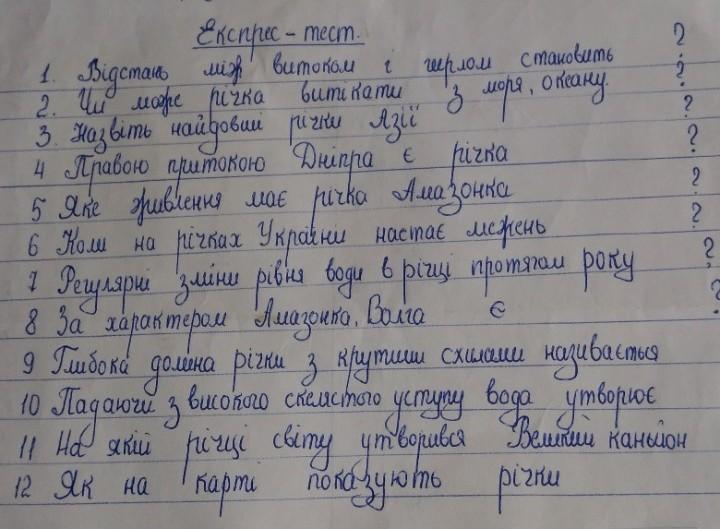 Експрес - тест.
1. Відстань між витоком і гирлом становить ?
2. Чи може річка витікати з моря, океану. ?
3. Назвіть найдовші річки Азії ?
4 Правою притокою Дніпра є річка ?
5 Яке живлення має річка Амазонка ?
6 Коли на річках України настає межень ?
7 Регулярні зміни рівня води в річці протягом року ?
8 За характером Амазонка, Волга є ?
9 Глибока долина річки з крутими схилами називається
10 Падаючи з високого скелястого уступу вода утворює
11 На якій річці світу утворився Великий каньйон
12 Як на карті показують річки